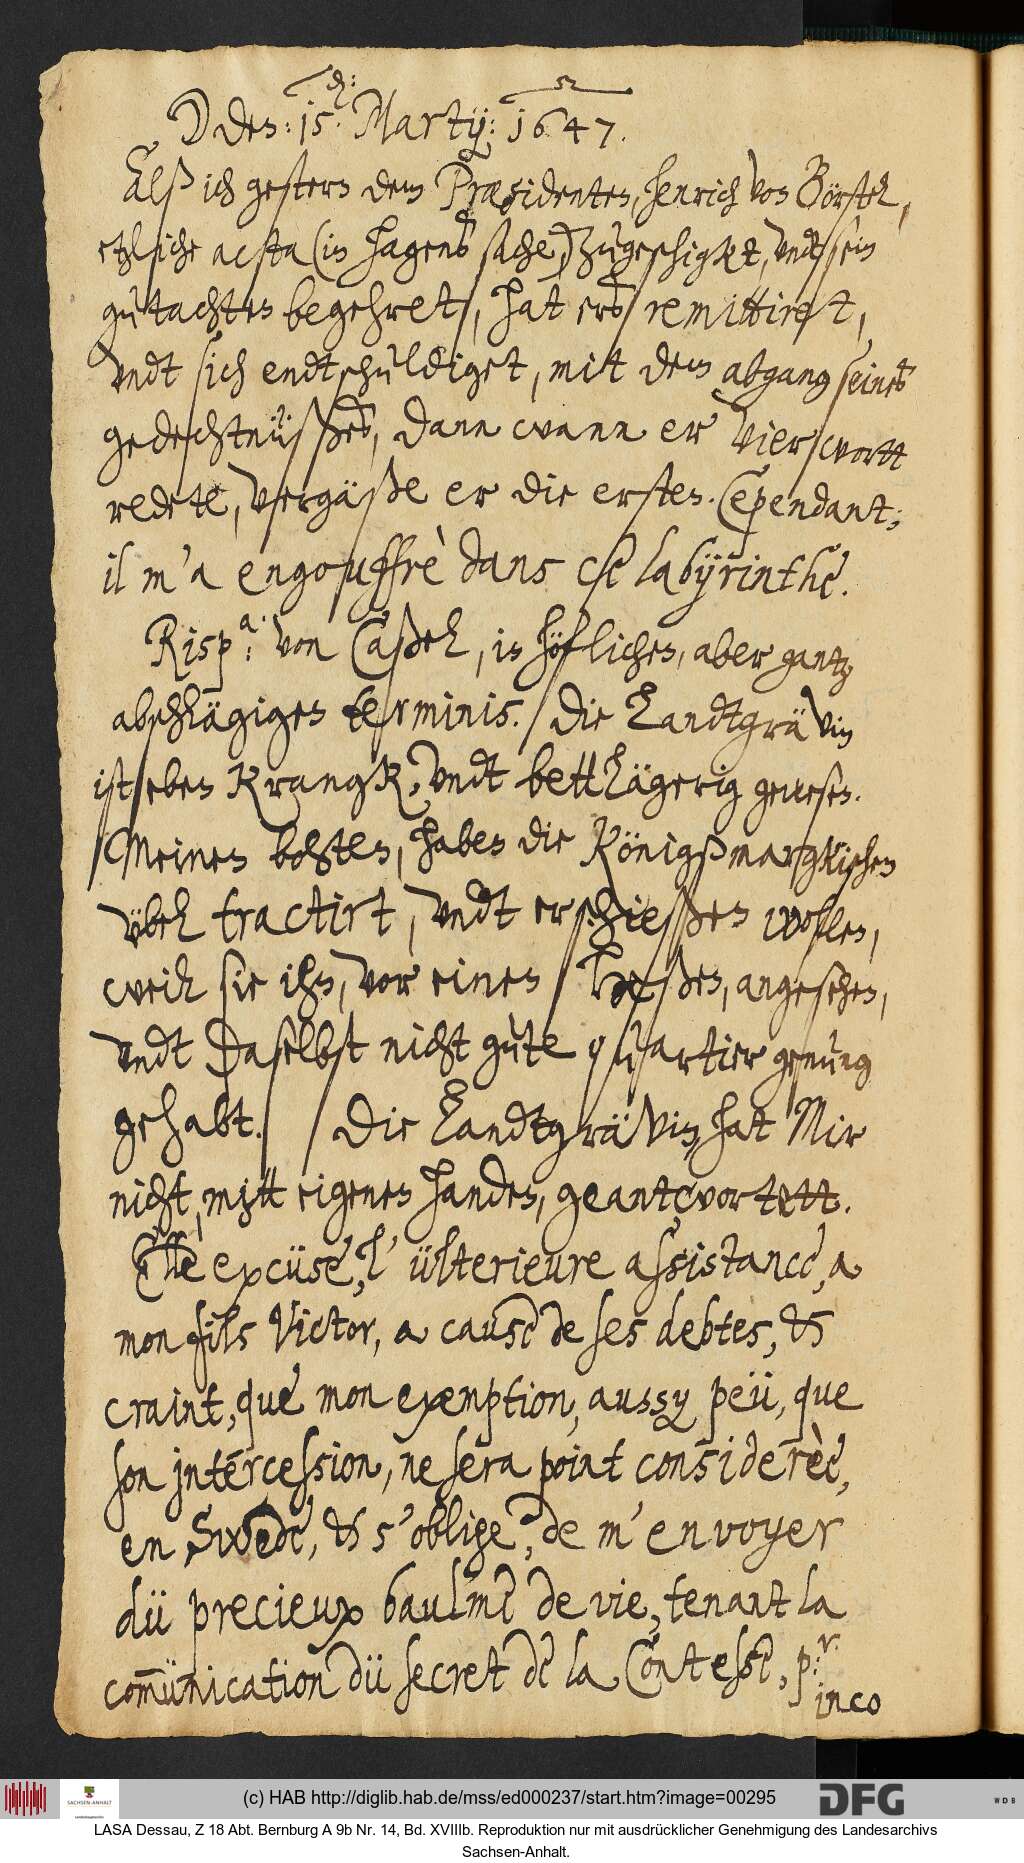 ☽ den: 15. Martij: 1647.
Alß ich gestern dem Præsidenten, Henrich von Börstel,
etzliche acta (in Hagens sache,) zugeschigkt, undt sein
gutachten begehret, hat ers remittiret,
undt sich endtschuldiget, mit dem abgang seines
gedechtnüßes, dann wann er vier wortt
redete, vergäße er die ersten. Cependant;
il m'a engouffrè dans ce labÿrinthe.
Risp:a von Caßel, in höflichen, aber gantz
abschlägigen terminis. Die Landtgrävin
ist eben krangk, undt bettlägerig gewesen.
Meinen bohten, haben die Königßmargkischen
übel tractirt, undt erschießen wollen,
weil sie ihn, vor einen Heßen, angesehen,
undt daselbst nicht gute quartier genung
gehabt. Die Landtgrävin hat Mir
nicht, mitt eigenen handen, geantwortett.
Elle excüse, l' ülterieure assistance, a
mon fils Victor, a cause de ses debtes, &
craint, que mon exemption, aussy peü, que
son jntercession, ne sera point considerèe,
en Swede, & s'oblige, de m'envoyer
dü precieux baulme de vie, tenant la
com̄ünication dü secret de la Contesse, p:r
inco
(c) HAB http://diglib.hab.de/mss/ed000237/start.htm?image=00295
SACHSEN-ANHALT
DFG
WDB
LASA Dessau, Z 18 Abt. Bernburg A 9b Nr. 14, Bd. XVIIIb. Reproduktion nur mit ausdrücklicher Genehmigung des Landesarchivs
Sachsen-Anhalt.